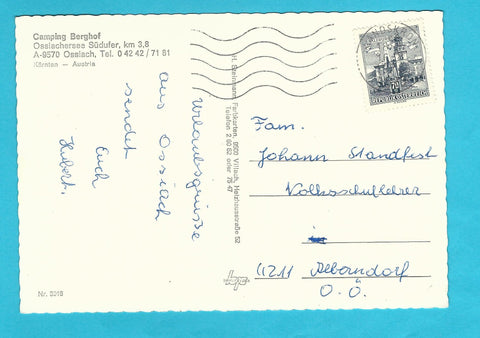 Camping Berghof
Ossiachersee Südufer, km 3,8
A-9570 Ossiach, Tel. 0 42 42 / 71 81
Kärnten — Austria
Urlaubsgrüsse
aus Ossiach
sendet
Euch
Hubert.
H. Steinmann, Farbkarten, 9500 Villach, Heizhausstraße 52
Telefon 2 60 62 oder 75 47
REPUBLIK ÖSTERREICH
Fam.
Johann Standfest
Volksschullehrer
in
4211 Alberndorf
O. Ö.
Nr. 5018